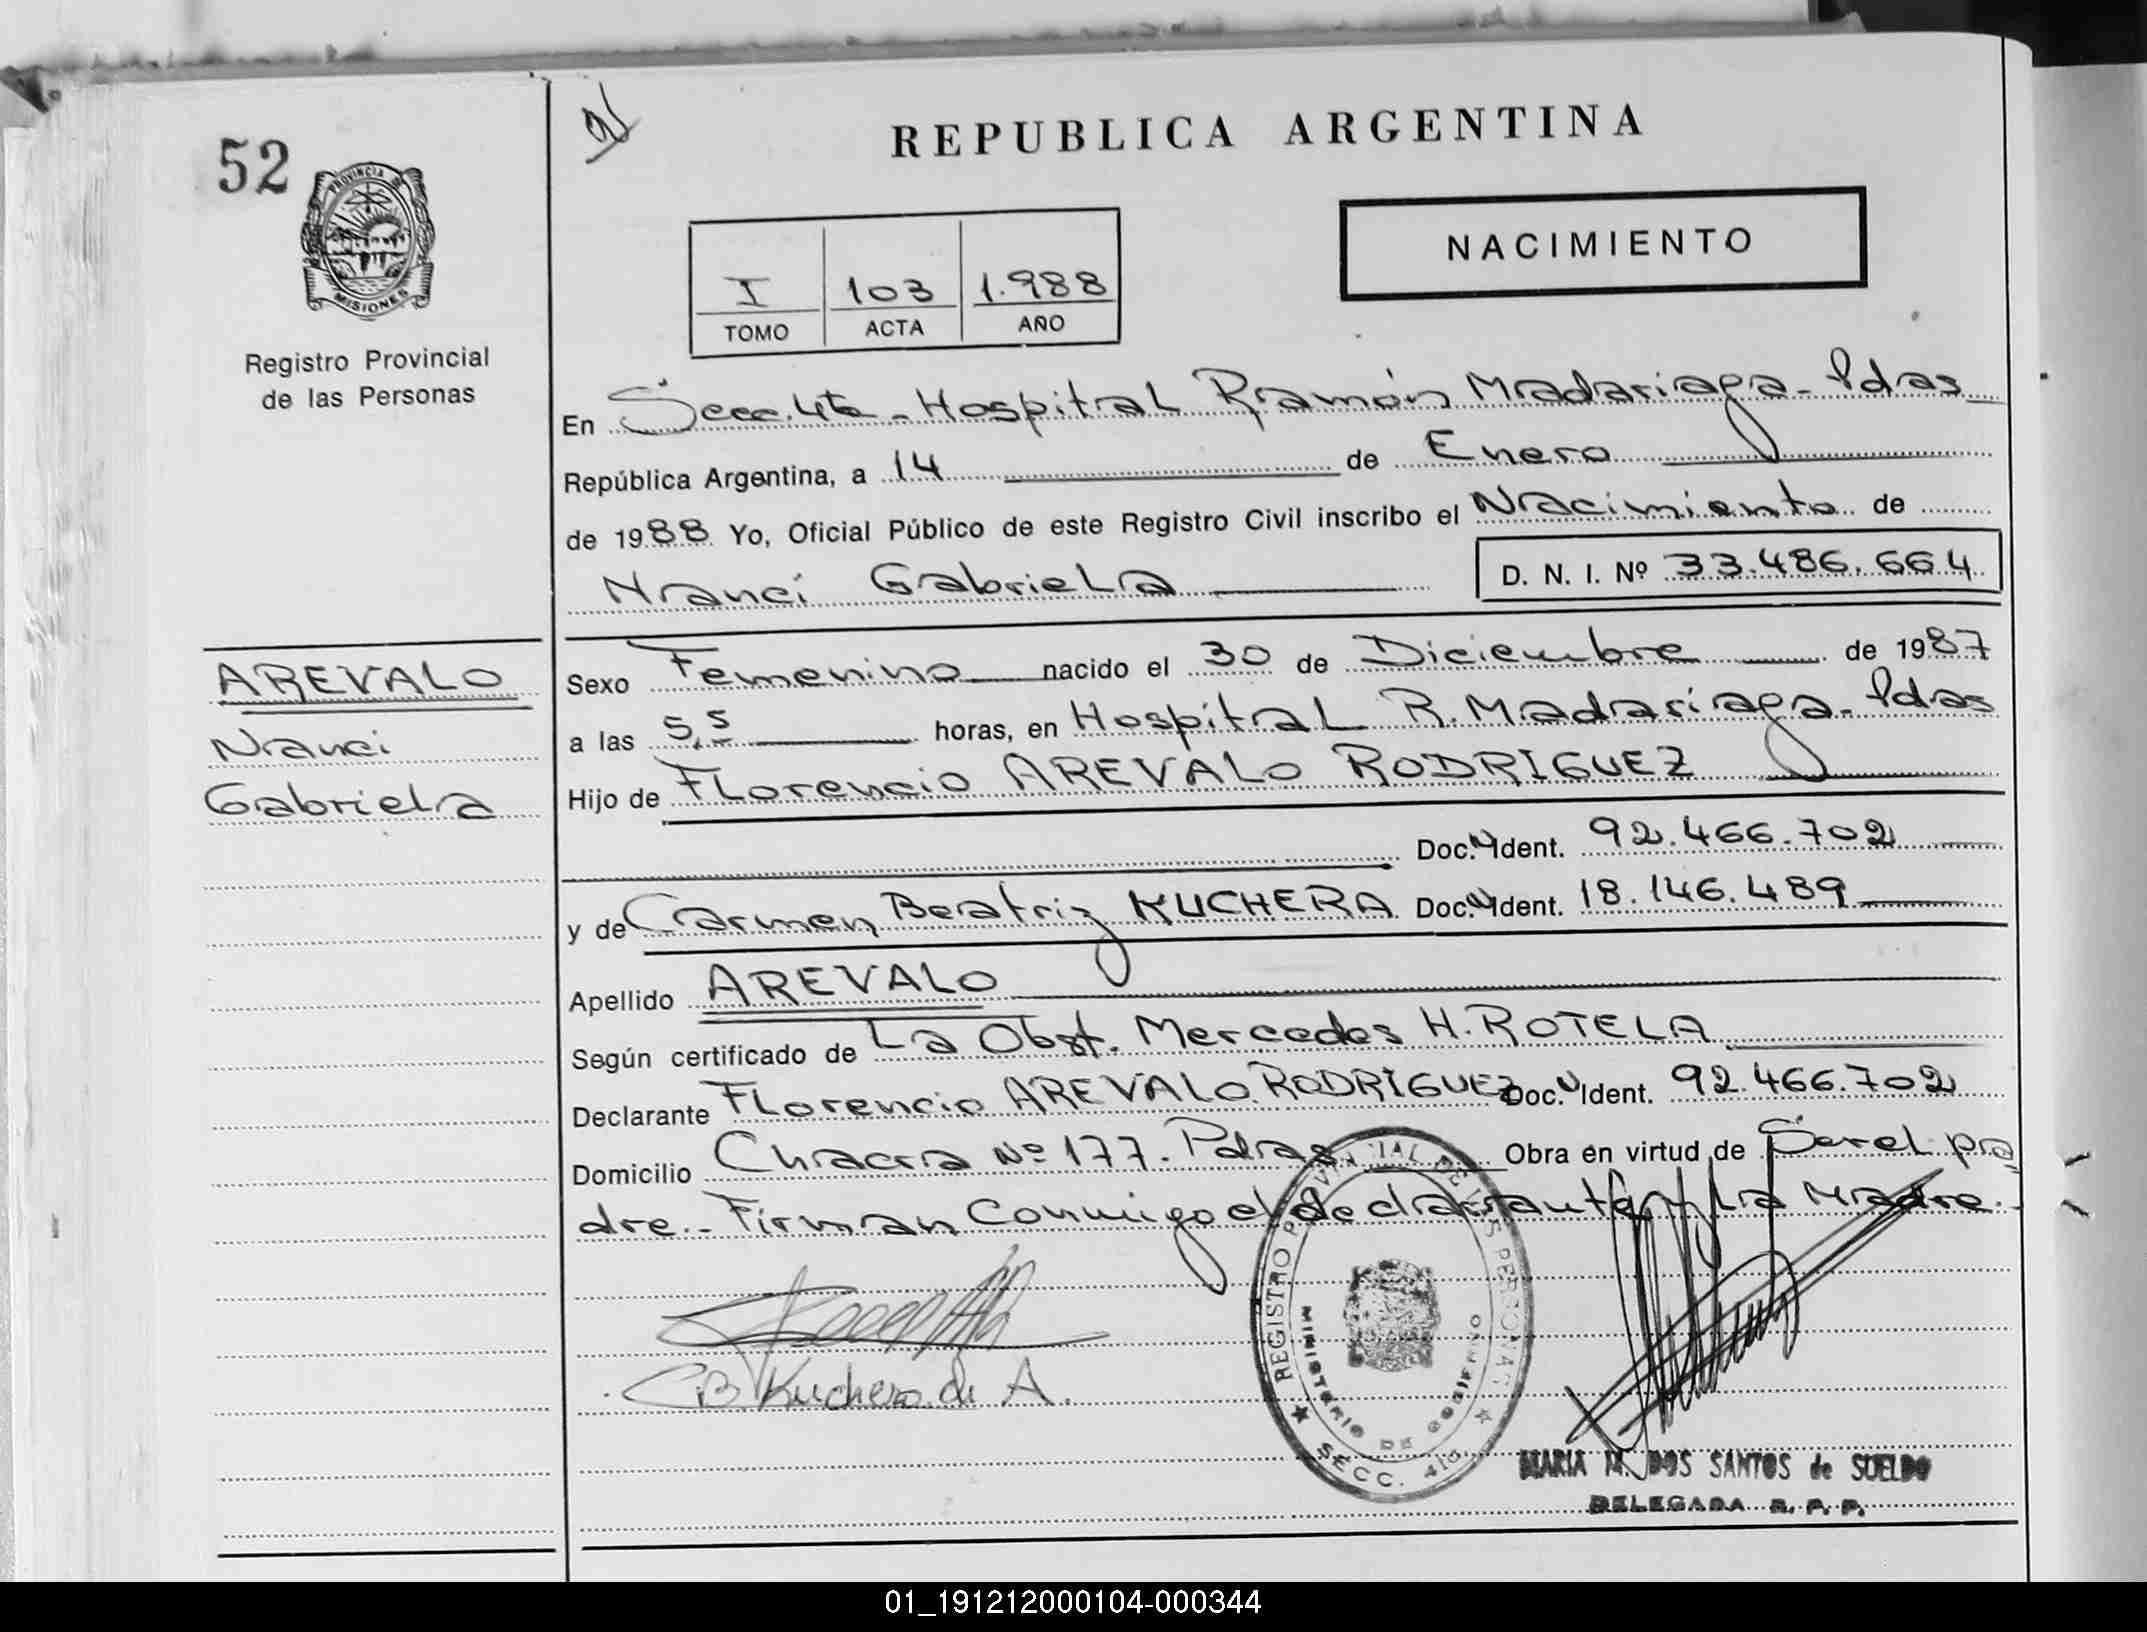 52
REPUBLICA ARGENTINA
PROVINCIA DE
MISIONES
Registro Provincial
de las Personas
NACIMIENTO
I 103 1.988
TOMO ACTA AÑO
En Secc. 4ta - Hospital Ramón Madariaga - Pdas
República Argentina, a 14 de Enero
de 1988 Yo, Oficial Público de este Registro Civil inscribo el Nacimiento de
Nanci Gabriela D. N. I. Nº 33.486.664
AREVALO
Nanci
Gabriela
Sexo Femenino nacido el 30 de Diciembre de 1987
a las 5,5 horas, en Hospital R. Madariaga - Pdas
Hijo de Florencio AREVALO RODRIGUEZ
Doc. N Ident. 92.466.702
y de Carmen Beatriz KUCHERA Doc. N Ident. 18.146.489
Apellido AREVALO
Según certificado de La Obst. Mercedes H. ROTELA
Declarante Florencio AREVALO RODRIGUEZ Doc. N Ident. 92.466.702
Domicilio Chacra Nº 177. Pdas Obra en virtud de Ser el pa
dre.- Firman Conmigo el declarante y La Madre.
CB Kuchera de A.
REGISTRO PROVINCIAL DE LAS PERSONAS
MINISTERIO DE GOBIERNO
SECC. 4ta
MARIA M. DOS SANTOS de SUELDO
DELEGADA R. P. P.
01_191212000104-000344